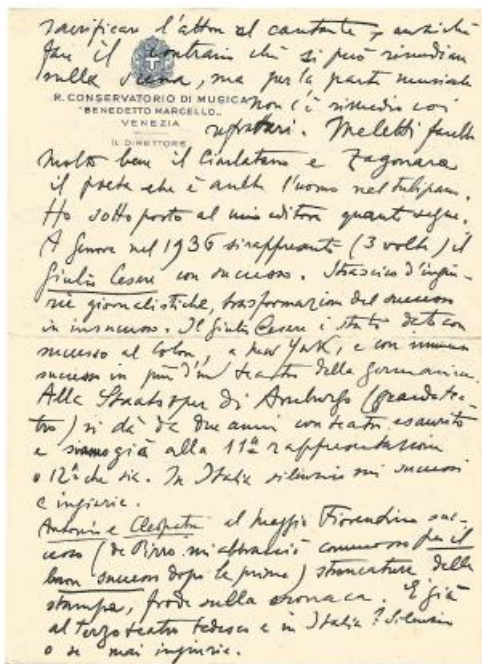 sacrificare l'attore al cantante, anzichè
fare il contrario chè si può rimediare
sulla scena, ma per la parte musicale
R. CONSERVATORIO DI MUSICA
"BENEDETTO MARCELLO"
VENEZIA
IL DIRETTORE
non c'è rimedio coi
Meletti farebbe
molto bene il Ciarlatano e Zagonara
il poeta che è anche l'uomo nel tulipano.
Ho sottoposto al mio editore quanto segue.
A Genova nel 1936 si rappresentò (3 volte) il
Giulio Cesare con successo. Strascico d'ingiu-
rie giornalistiche, trasformazioni del successo
in insuccesso. Il Giulio Cesare è stato dato con
successo al Colon, a New York, e con immenso
successo in più d'un teatro della Germania.
Alla Staatsoper di Amburgo (grande tea-
tro) si dà da due anni con teatri esauriti
e siamo già alla 11ª rappresentazione
o 12ª che sia. In Italia silenzio sui successi
e ingiurie.
Antonio e Cleopatra al Maggio Fiorentino suc-
cesso (de Pirro mi abbracciò commosso per il
buon successo dopo la prima) stroncature della
stampa, frode sulla cronaca. È già
al terzo teatro tedesco e in Italia? Silenzio
o se mai ingiurie.